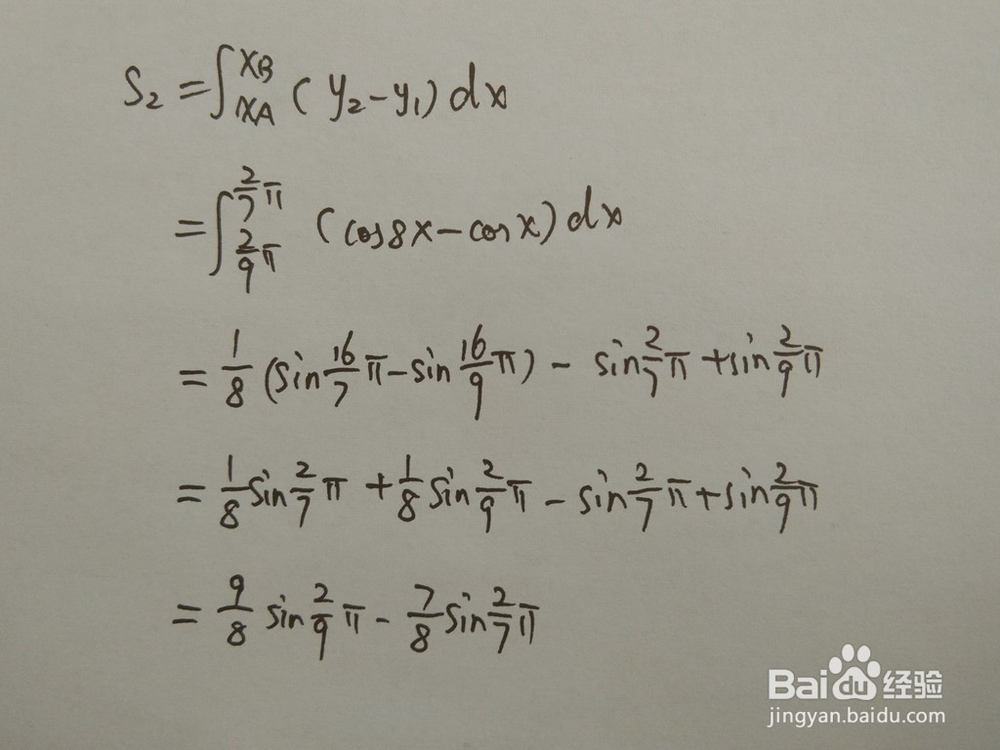 S₂ = ∫_{xA}^{xB} (y₂ - y₁) dx
= ∫_{2/9 π}^{2/7 π} (cos8x - cosx) dx
= 1/8 (sin 16/7 π - sin 16/9 π) - sin 2/7 π + sin 2/9 π
= 1/8 sin 2/7 π + 1/8 sin 2/9 π - sin 2/7 π + sin 2/9 π
= 9/8 sin 2/9 π - 7/8 sin 2/7 π
Baidu 经验
jingyan.baidu.com